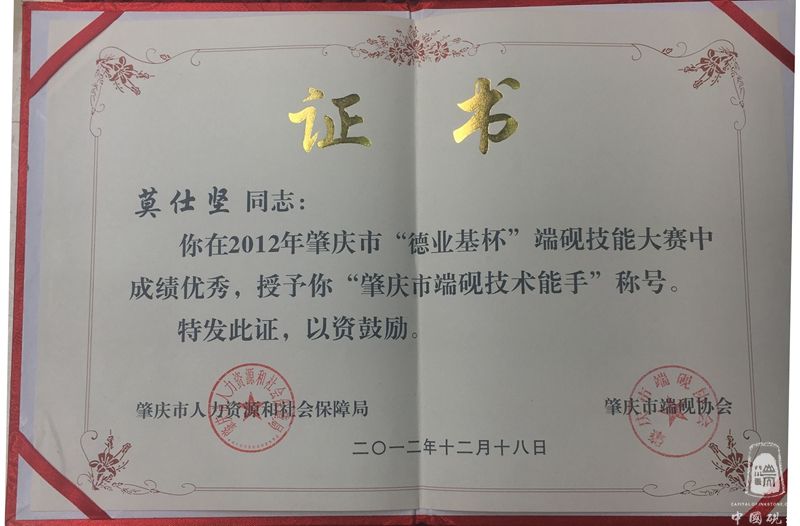 证书
莫仕坚 同志：
你在2012年肇庆市“德业基杯”端砚技能大赛中
成绩优秀，授予你“肇庆市端砚技术能手”称号。
特发此证，以资鼓励。
肇庆市人力资源和社会保障局
肇庆市端砚协会
二〇一二年十二月十八日
CAPITAL OF INKSTONE
中國硯